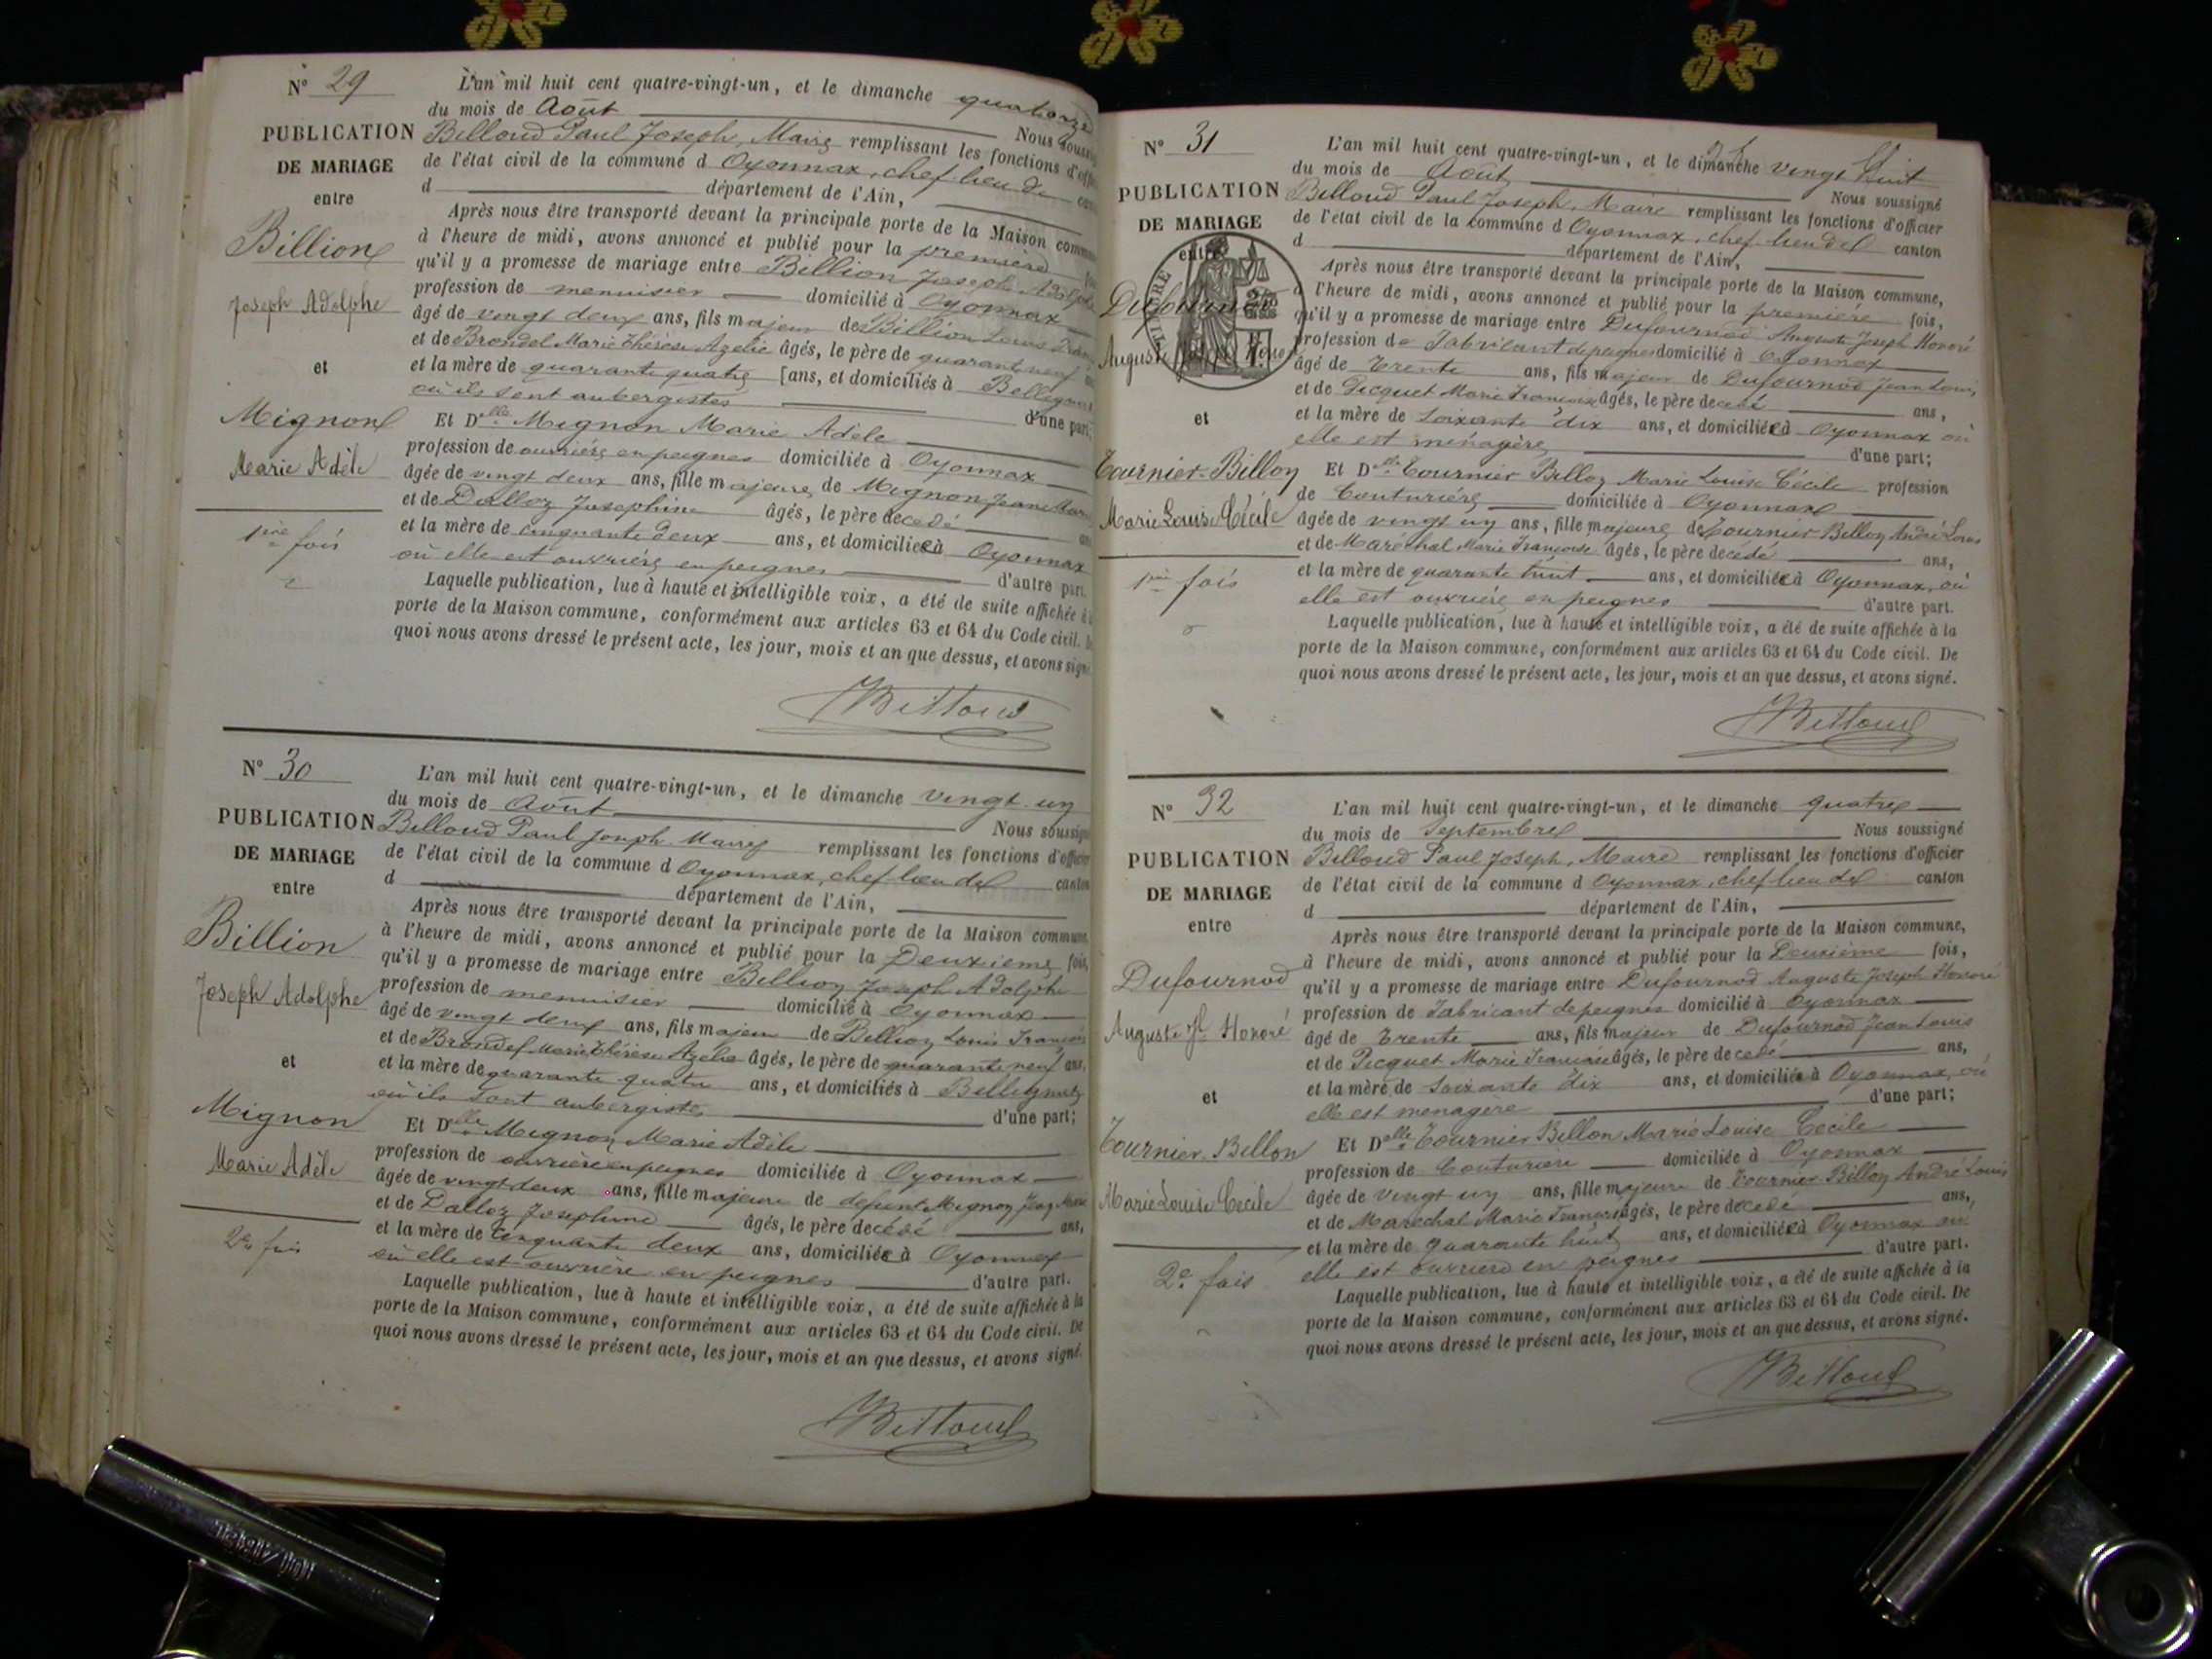 N° 29
PUBLICATION
DE MARIAGE
entre
Billion
Joseph Adolphe
et
Mignon
Marie Adèle
1ère fois
L'an mil huit cent quatre-vingt-un, et le dimanche quatorze
du mois de Août Nous souss
Billoud Paul Joseph, Maire remplissant les fonctions d'off
de l'état civil de la commune d Oyonnax, chef-lieu du can
d département de l'Ain,
Après nous être transporté devant la principale porte de la Maison commun
à l'heure de midi, avons annoncé et publié pour la première
qu'il y a promesse de mariage entre Billion Joseph Adolphe
profession de menuisier domicilié à Oyonnax
âgé de vingt deux ans, fils majeur de Billion Louis Fran
et de Brondel Marie Thérèse Azelie âgés, le père de quarante neuf
et la mère de quarante quatre ans, et domiciliés à Bellignat
où ils sont aubergistes d'une part;
Et Delle Mignon Marie Adèle
profession de ouvrière en peignes domiciliée à Oyonnax
âgée de vingt deux ans, fille majeure de Mignon Jean Marie
et de Dalloz Josephine âgés, le père décédé ans
et la mère de cinquante deux ans, et domiciliée à Oyonnax
où elle est ouvrière en peignes d'autre part.
Laquelle publication, lue à haute et intelligible voix, a été de suite affichée à
porte de la Maison commune, conformément aux articles 63 et 64 du Code civil. De
quoi nous avons dressé le présent acte, les jour, mois et an que dessus, et avons signé
Billoud
N° 30
PUBLICATION
DE MARIAGE
entre
Billion
Joseph Adolphe
et
Mignon
Marie Adèle
2e fois
L'an mil huit cent quatre-vingt-un, et le dimanche vingt un
du mois de Août Nous soussign
Billoud Paul Joseph Maire remplissant les fonctions d'officier
de l'état civil de la commune d Oyonnax, chef-lieu de canton
d département de l'Ain,
Après nous être transporté devant la principale porte de la Maison commune,
à l'heure de midi, avons annoncé et publié pour la Deuxième fois,
qu'il y a promesse de mariage entre Billion Joseph Adolphe
profession de menuisier domicilié à Oyonnax
âgé de vingt deux ans, fils majeur de Billion Louis François
et de Brondel Marie Thérèse Azelie âgés, le père de quarante neuf ans,
et la mère de quarante quatre ans, et domiciliés à Bellignat
où ils sont aubergistes d'une part;
Et Delle Mignon Marie Adèle
profession de ouvrière en peignes domiciliée à Oyonnax
âgée de vingt deux ans, fille majeure de defunt Mignon Jean Marie
et de Dalloz Josephine âgés, le père décédé ans,
et la mère de cinquante deux ans, domiciliée à Oyonnax
où elle est ouvrière en peignes d'autre part.
Laquelle publication, lue à haute et intelligible voix, a été de suite affichée à la
porte de la Maison commune, conformément aux articles 63 et 64 du Code civil. De
quoi nous avons dressé le présent acte, les jour, mois et an que dessus, et avons signé.
Billoud
N° 31
PUBLICATION
DE MARIAGE
entre
Dufournod
Auguste
et
Tournier-Billon
Marie Louise Cécile
1ère fois
L'an mil huit cent quatre-vingt-un, et le dimanche vingt huit
du mois de Août Nous soussigné
Billoud Paul Joseph, Maire remplissant les fonctions d'officier
de l'état civil de la commune d Oyonnax, chef-lieu de canton
d département de l'Ain,
Après nous être transporté devant la principale porte de la Maison commune,
à l'heure de midi, avons annoncé et publié pour la première fois,
qu'il y a promesse de mariage entre Dufournod Auguste Joseph Honoré
profession de Fabricant de peignes domicilié à Oyonnax
âgé de Trente ans, fils majeur de Dufournod Jean Louis
et de Picquet Marie Françoise âgés, le père décédé ans,
et la mère de soixante dix ans, et domiciliée à Oyonnax où
elle est ménagère d'une part;
Et Delle Tournier Billon Marie Louise Cécile profession
de Couturière domiciliée à Oyonnax
âgée de vingt un ans, fille majeure de Tournier Billon André Louis
et de Maréchal Marie Françoise âgés, le père décédé ans,
et la mère de quarante huit ans, et domiciliée à Oyonnax, où
elle est ouvrière en peignes d'autre part.
Laquelle publication, lue à haute et intelligible voix, a été de suite affichée à la
porte de la Maison commune, conformément aux articles 63 et 64 du Code civil. De
quoi nous avons dressé le présent acte, les jour, mois et an que dessus, et avons signé.
Billoud
N° 32
PUBLICATION
DE MARIAGE
entre
Dufournod
Auguste Jh Honoré
et
Tournier-Billon
Marie Louise Cécile
2e fois
L'an mil huit cent quatre-vingt-un, et le dimanche quatre
du mois de Septembre Nous soussigné
Billoud Paul Joseph, Maire remplissant les fonctions d'officier
de l'état civil de la commune d Oyonnax, chef lieu de canton
d département de l'Ain,
Après nous être transporté devant la principale porte de la Maison commune,
à l'heure de midi, avons annoncé et publié pour la Deuxième fois,
qu'il y a promesse de mariage entre Dufournod Auguste Joseph Honoré
profession de Fabricant de peignes domicilié à Oyonnax
âgé de Trente ans, fils majeur de Dufournod Jean Louis
et de Picquet Marie Françoise âgés, le père décédé ans,
et la mère de soixante dix ans, et domiciliée à Oyonnax, où
elle est menagère d'une part;
Et Delle Tournier Billon Marie Louise Cécile
profession de Couturière domiciliée à Oyonnax
âgée de vingt un ans, fille majeure de Tournier Billon André Louis
et de Marechal Marie Françoise âgés, le père décédé ans,
et la mère de quarante huit ans, et domiciliée à Oyonnax où
elle est ouvrière en peignes d'autre part.
Laquelle publication, lue à haute et intelligible voix, a été de suite affichée à la
porte de la Maison commune, conformément aux articles 63 et 64 du Code civil. De
quoi nous avons dressé le présent acte, les jour, mois et an que dessus, et avons signé.
Billoud